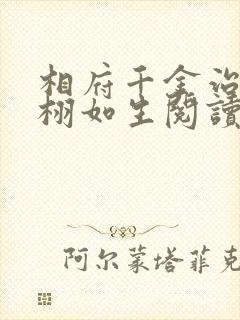 相府千金治
栩如生閱讀
阿尔蒙塔菲克